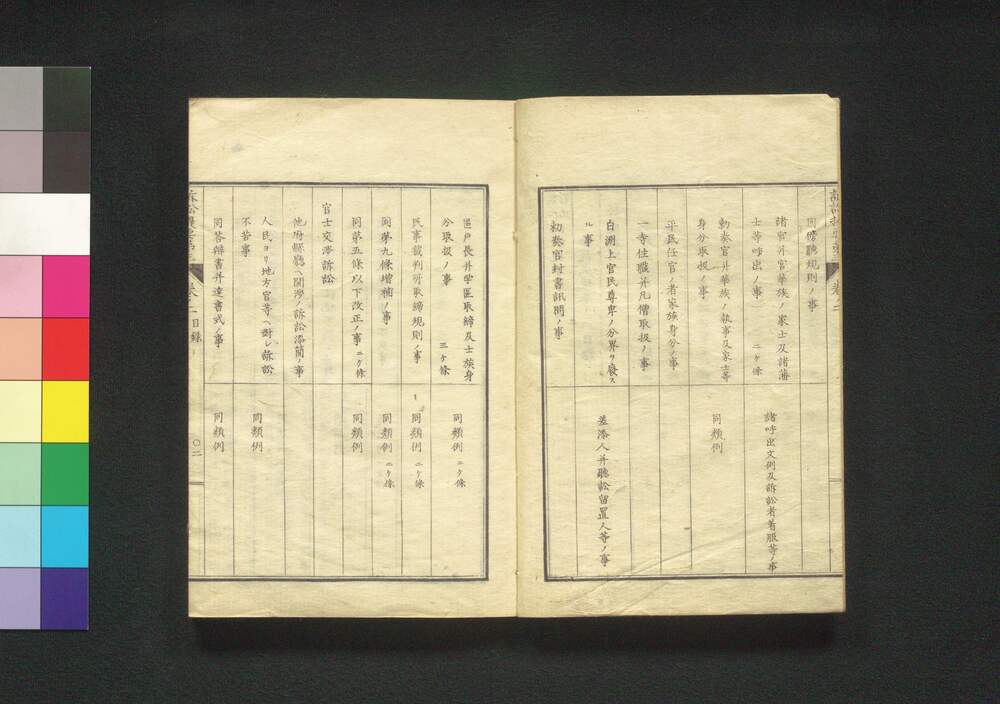 同傍聽規則ノ事
諸官并官華族ノ家士及諸藩
士等呼出ノ事 二ケ條
諸呼出文例及訴訟者着服等ノ事
勅奏官并華族ノ執事及家士等
身分取扱ノ事
同類例
平民任官ノ者家族身分ノ事
一寺住職并凡僧取扱ノ事
白洲上官民尊卑ノ分界ヲ廢ス
ル事
差添人并聽訟留置人等ノ事
勅奏官封書訊問ノ事
區戸長并学區取締及士族身
分取扱ノ事 三ケ條
同類例 二ケ條
民事裁判所取締規則ノ事
同類例 二ケ條
同第九條增補ノ事
同類例 二ケ條
同第五條以下改正ノ事 二ケ條
同類例
官士交渉訴訟
他府縣廳ヘ関渉ノ訴訟添簡ノ事
人民ヨリ地方官等ヘ對シ訴訟
不苦事
同類例
同答辯書并達書式ノ事
同類例
目録
〇二